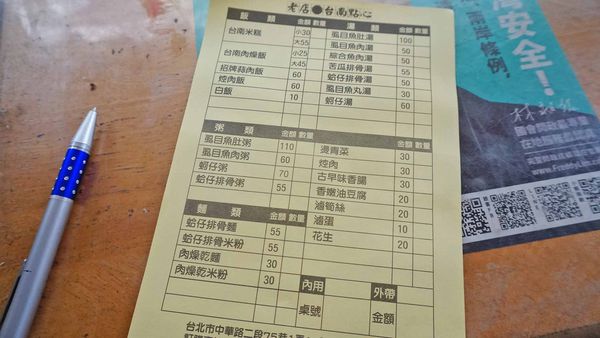 老店●台南點心
飯類 金額 數量 湯類 金額 數量
台南米糕 小30 虱目魚肚湯 100
大55 虱目魚肉湯 50
台南肉燥飯 小25 綜合魚肉湯 50
大45 苦瓜排骨湯 55
招牌蒜肉飯 60 蛤仔排骨湯 50
焢肉飯 60 虱目魚丸湯 30
白飯 10 蚵仔湯 60
粥類 金額 數量 金額 數量
虱目魚肚粥 110 燙青菜 30
虱目魚肉粥 60 焢肉 30
蚵仔粥 70 古早味香腸 30
蛤仔排骨粥 55 香嫩油豆腐 20
滷筍絲 20
麵類 金額 數量 滷蛋 10
蛤仔排骨麵 55 花生 20
蛤仔排骨米粉 55
肉燥乾麵 30
肉燥乾米粉 30
內用 外帶
桌號 金額
台北市中華路二段75巷1
灣安全！
兩岸條例，
國會開啟
在地